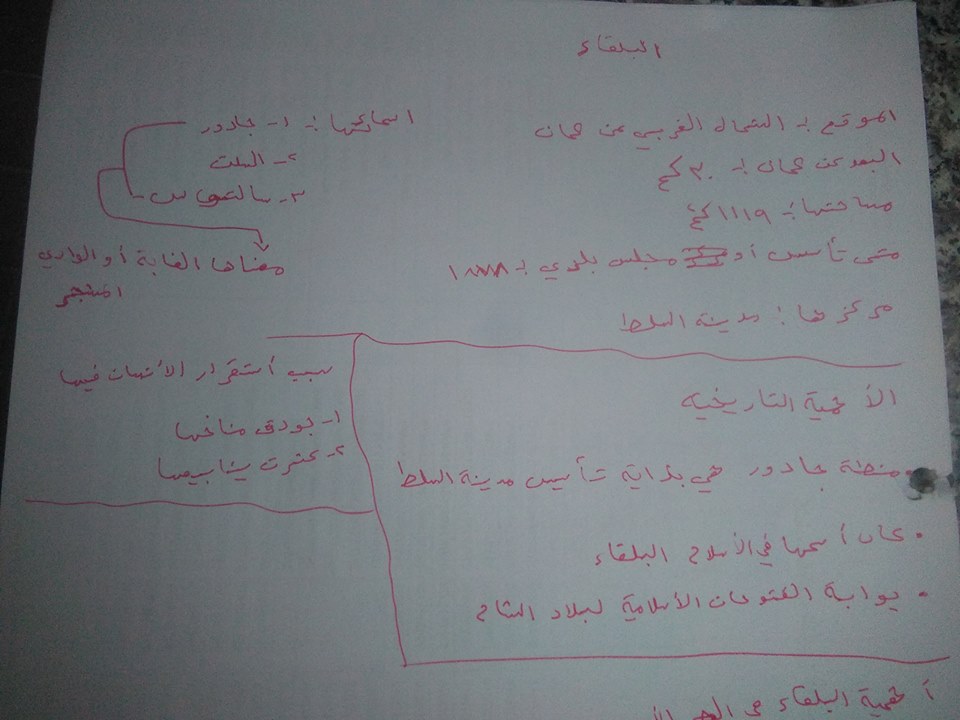 البلقاء
الموقع :- الشمال الغربي من عمان
البعد عن عمان :- ٣٠ كم
مساحتها :- ١١١٩ كم٢
متى تأسس أو مجلس بلدي :- ١٨٨٨
مركزها : مدينة السلط
اسمائها :- ١- جادور
٢- السلت
٣- سالتوس
معناها الغابة أو الوادي
المشجر
سبب أستقرار الأنسان فيها
١- جودة مناخها
٢- كثرت ينابيعها
الأهمية التاريخية
منطقة جادور هي بداية تأسيس مدينة السلط
• كان أسمها في الأسلام البلقاء
• بوابة الفتوحات الأسلامية لبلاد الشام
أهمية البلقاء في